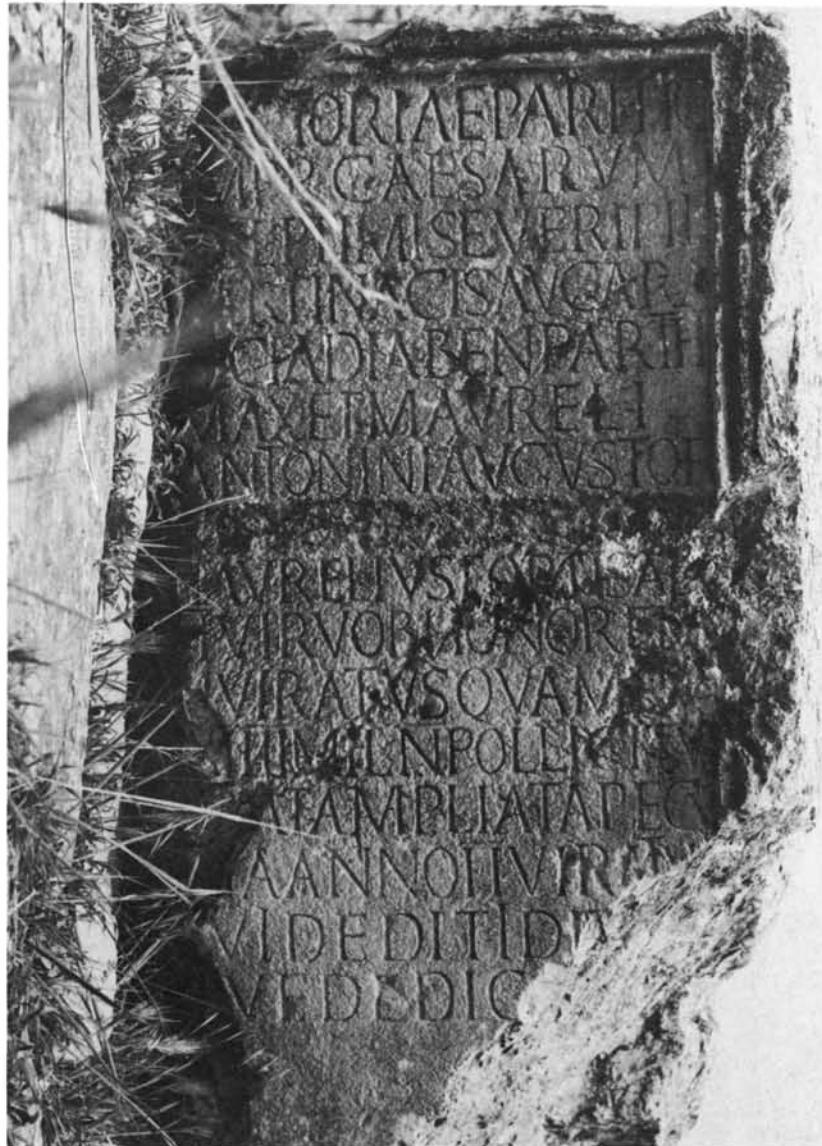 TORIAE PARTH
MP CAESARVM
EPTIMI SEVERI PII
RTINACIS AVG AR
CI ADIABEN PARTH
MAX ET M AVRELI
ANTONINI AVGVSTOR
AVRELIVS
VIR VOB HONORE
VIRATVS QVAM
MIL N POLLICIT
AT AMPLIATA PEC
A ANNO II VIR
VI DEDIT ID
VE DEDIC